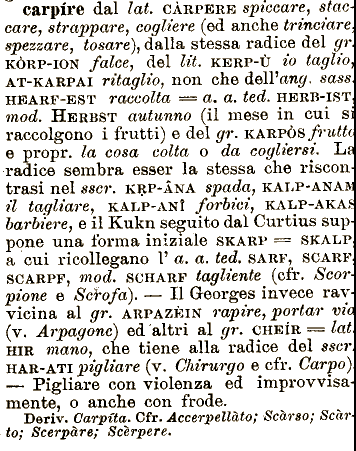 carpíre dal lat. CÀRPERE spiccare, stac-
care, strappare, cogliere (ed anche trinciare,
spezzare, tosare), dalla stessa radice del gr.
KÒRP-ION falce, del lit. KERP-Ù io taglio,
AT-KARPAI ritaglio, non che dell'ang. sass.
HEARF-EST raccolta = a. a. ted. HERB-IST,
mod. HERBST autunno (il mese in cui si
raccolgono i frutti) e del gr. KARPÒS frutto
e propr. la cosa colta o da cogliersi. La
radice sembra esser la stessa che riscon-
trasi nel sscr. KṚP-ÂNA spada, KALP-ANAM
il tagliare, KALP-ANÎ forbici, KALP-AKAS
barbiere, e il Kukn seguito dal Curtius sup-
pone una forma iniziale SKARP = SKALP,
a cui ricollegano l' a. a. ted. SARF, SCARF,
SCARPF, mod. SCHARF tagliente (cfr. Scor-
pione e Scròfa). — Il Georges invece rav-
vicina al gr. ARPAZÈIN rapire, portar via
(v. Arpagone) ed altri al gr. CHEÍR = lat.
HIR mano, che tiene alla radice del sscr.
HAR-ATI pigliare (v. Chirurgo e cfr. Carpo).
— Pigliare con violenza ed improvvisa-
mente, o anche con frode.
Deriv. Carpíta. Cfr. Accerpellàto; Scàrso; Scàr-
to; Scerpàre; Scèrpere.